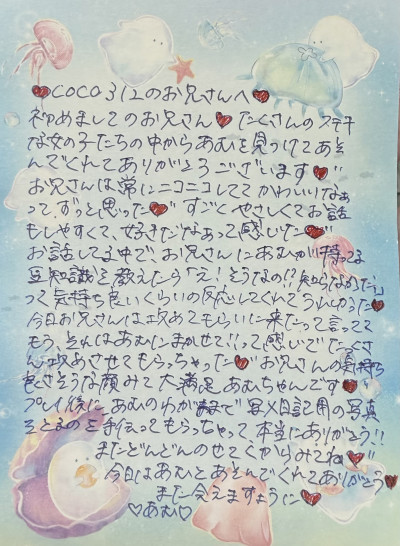 ♥COCO312のお兄さんへ♥
初めましてのお兄さん♥たくさんのステキ
な女の子たちの中からあむを見つけてあそ
んでくれてありがとうございます♥
お兄さんは常にニコニコしててかわいいなぁ
って、ずっと思った♥すごくやさしくてお話
もしやすくて、好きだなぁって感じた♥
お話してる中で、お兄さんにあむが持ってる
豆知識を教えたら「え!そうなの!?知らなかった」
って気持ち良いくらいの反応してくれてうれしかった♥
今日お兄さんは攻めてもらいに来たって言ってて
もう、それはあむにまかせて!!って感じでたくさ
ん攻めさせてもらっちゃった♥お兄さんの気持ち
良さそうな顔みて大満足あむちゃんです♥
プレイ後にあむのわがままで写メ日記用の写真
をとるのを手伝ってもらっちゃって、本当にありがとう!!
またどんどんのせてくからみてね♥
今日はあむとあそんでくれてありがとう♥
また会えますように♥
♡あむ♡